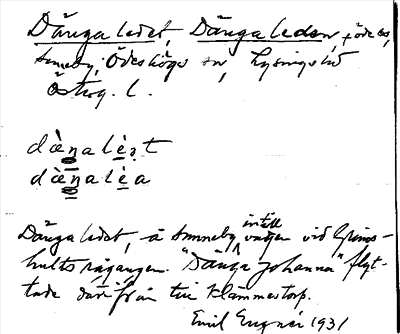 Dänga ledet, Dänga leden, + öde äs,
Smneby, Ödeshögs sn, Lysings hd
Östrg. l.
dæ̀ŋaleə̀t
dæ̀ŋalèa
Dänga ledet, å Smneby intill vägen vid Grims-
hults rågången. "Dänga Johanna" flyt-
tade därifrån till Klämmestorp.
Emil Engnér 1931